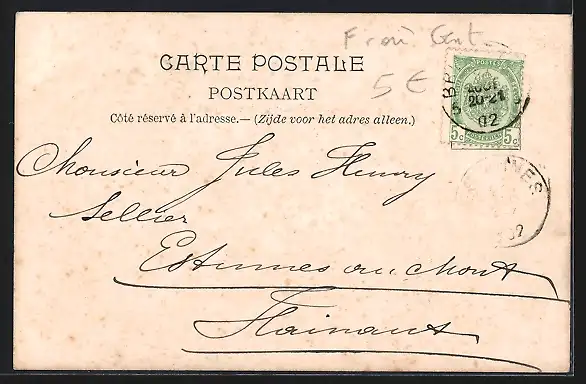 Froni Cent
CARTE POSTALE
5 €
POSTKAART
Côté réservé à l'adresse. — (Zijde voor het adres alleen.)
POSTES
BR
AOUT
20-21
02
5c 5c
Monsieur Jules Henry
Sellier
Estinnes au Mont
Hainaut
NES
02